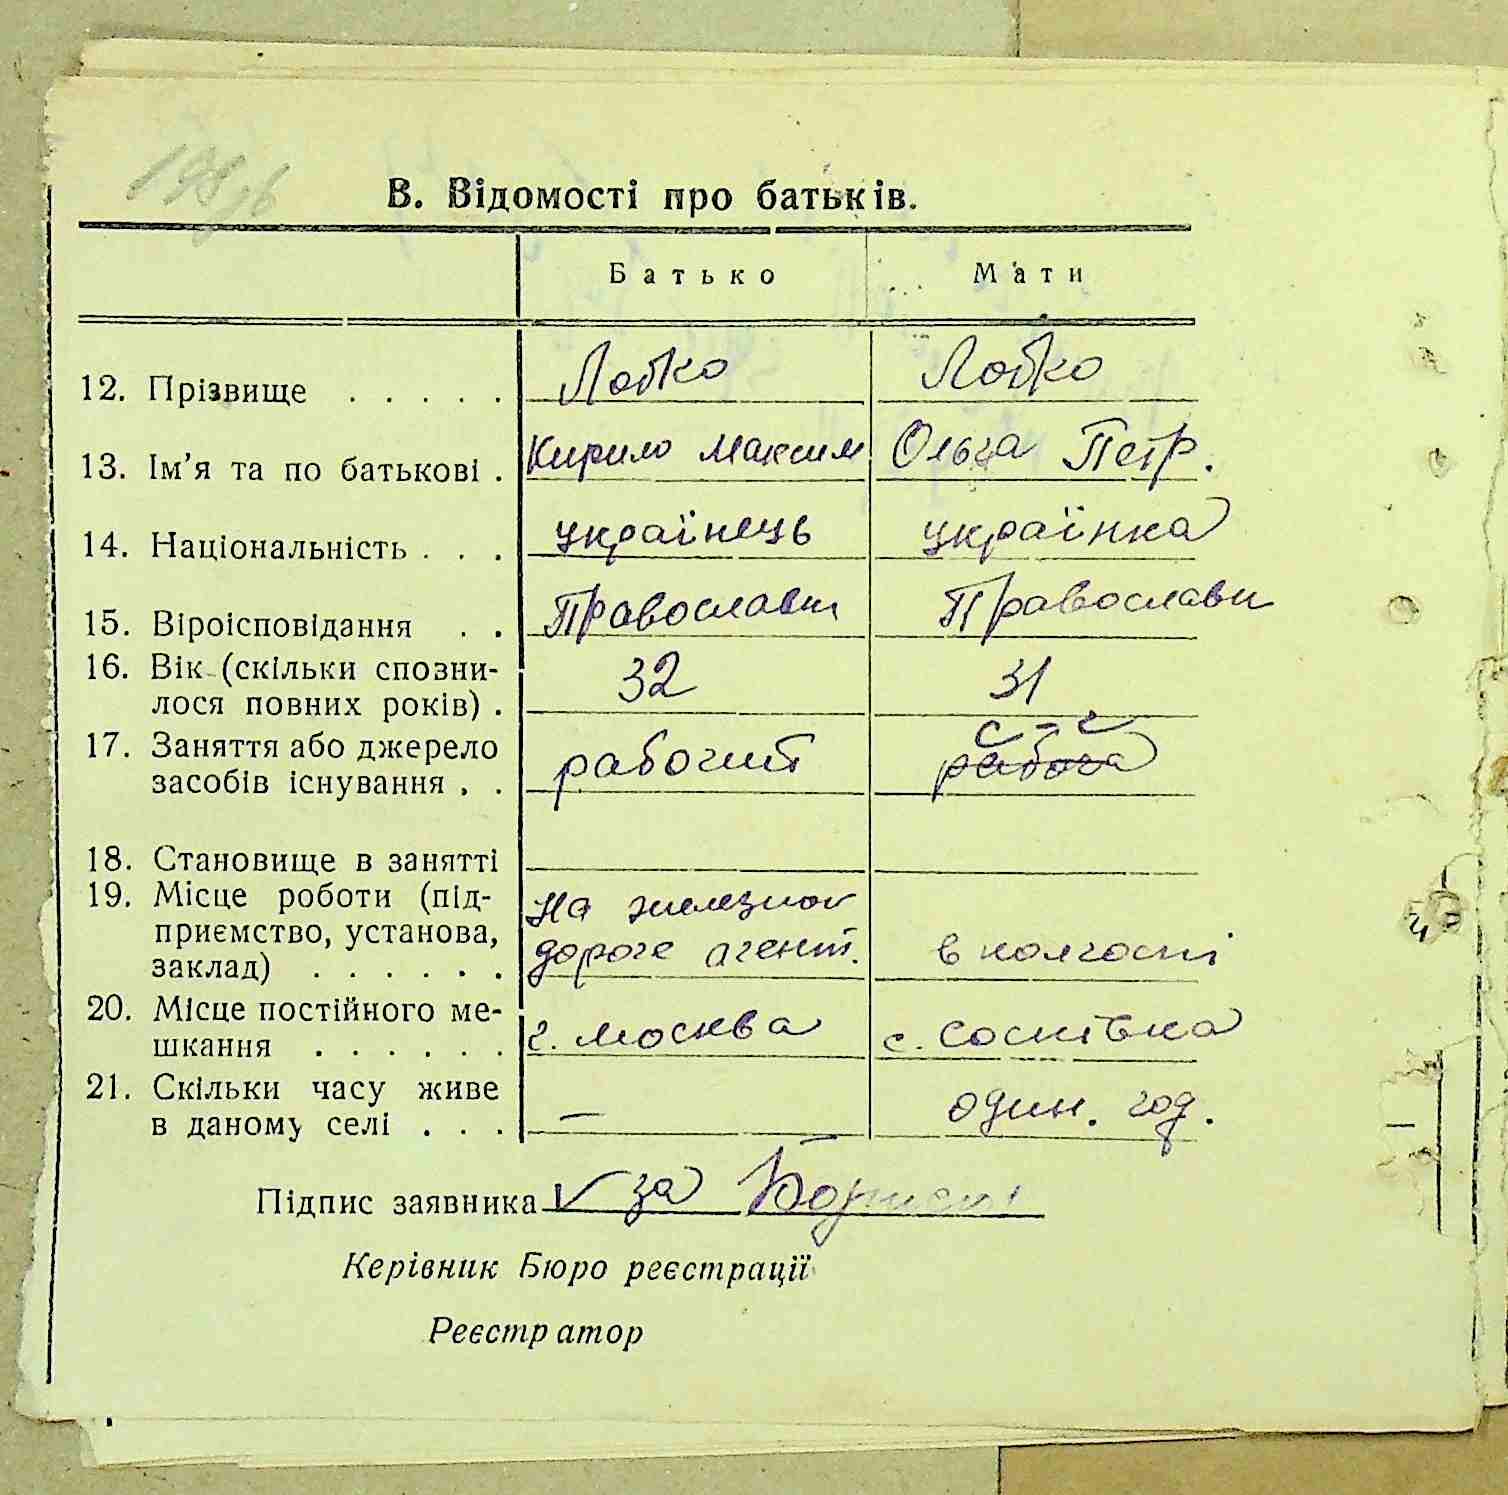 В. Відомості про батьків.
Батько Мати
12. Прізвище . . . . . Лобко Лобко
13. Ім'я та по батькові . Кирило Максим Ольга Петр.
14. Національність . . . українець українка
15. Віроісповідання . . Православн Православн
16. Вік (скільки спозни- 32 31
лося повних років) .
17. Заняття або джерело с-г
засобів існування . . рабочий рабоча
18. Становище в занятті
19. Місце роботи (під- На железной
приємство, установа, дороге агент. в колгоспі
заклад) . . . . . .
20. Місце постійного ме- г. Москва с. Соснівка
шкання . . . . . .
21. Скільки часу живе один. год.
в даному селі . . . —
Підпис заявника за
Керівник Бюро реєстрації
Реєстратор